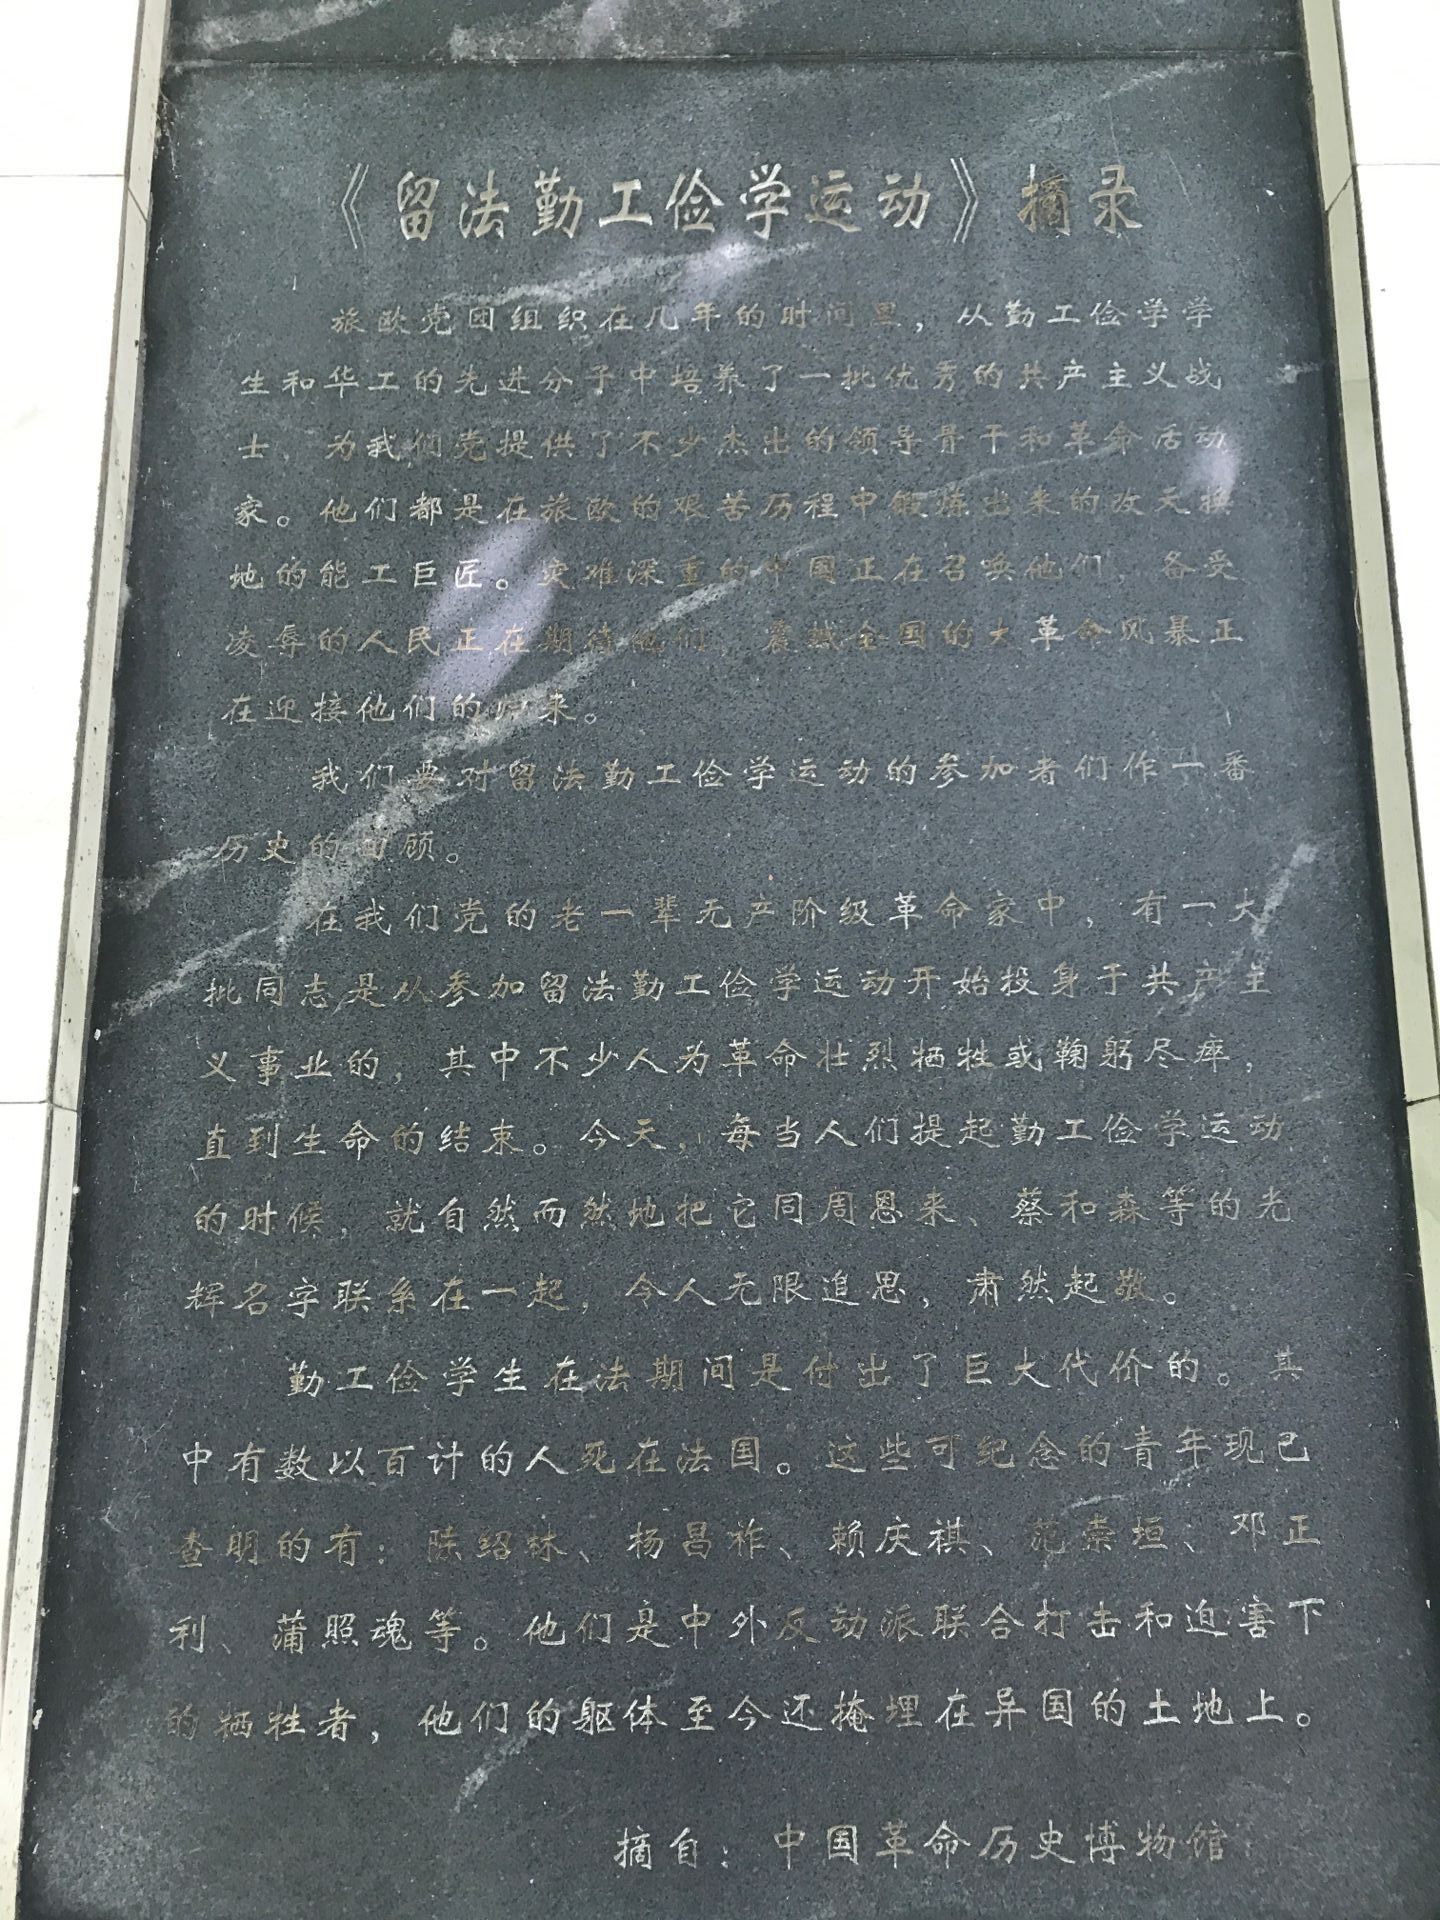 《留法勤工俭学运动》摘录
旅欧党团组织在几年的时间里，从勤工俭学学
生和华工的先进分子中培养了一批优秀的共产主义战
士，为我们党提供了不少杰出的领导骨干和革命活动
家。他们都是在旅欧的艰苦历程中锻炼出来的改天换
地的能工巨匠。灾难深重的中国正在召唤他们，备受
凌辱的人民正在期待他们，震撼全国的大革命风暴正
在迎接他们的归来。
我们要对留法勤工俭学运动的参加者们作一番
历史的回顾。
在我们党的老一辈无产阶级革命家中，有一大
批同志是从参加留法勤工俭学运动开始投身于共产主
义事业的，其中不少人为革命壮烈牺牲或鞠躬尽瘁，
直到生命的结束。今天，每当人们提起勤工俭学运动
的时候，就自然而然地把它同周恩来、蔡和森等的光
辉名字联系在一起，令人无限追思，肃然起敬。
勤工俭学生在法期间是付出了巨大代价的。其
中有数以百计的人死在法国。这些可纪念的青年现已
查明的有：陈绍林、杨昌祚、赖庆祺、范崇垣、邓正
利、蒲照魂等。他们是中外反动派联合打击和迫害下
的牺牲者，他们的躯体至今还掩埋在异国的土地上。
摘自：中国革命历史博物馆